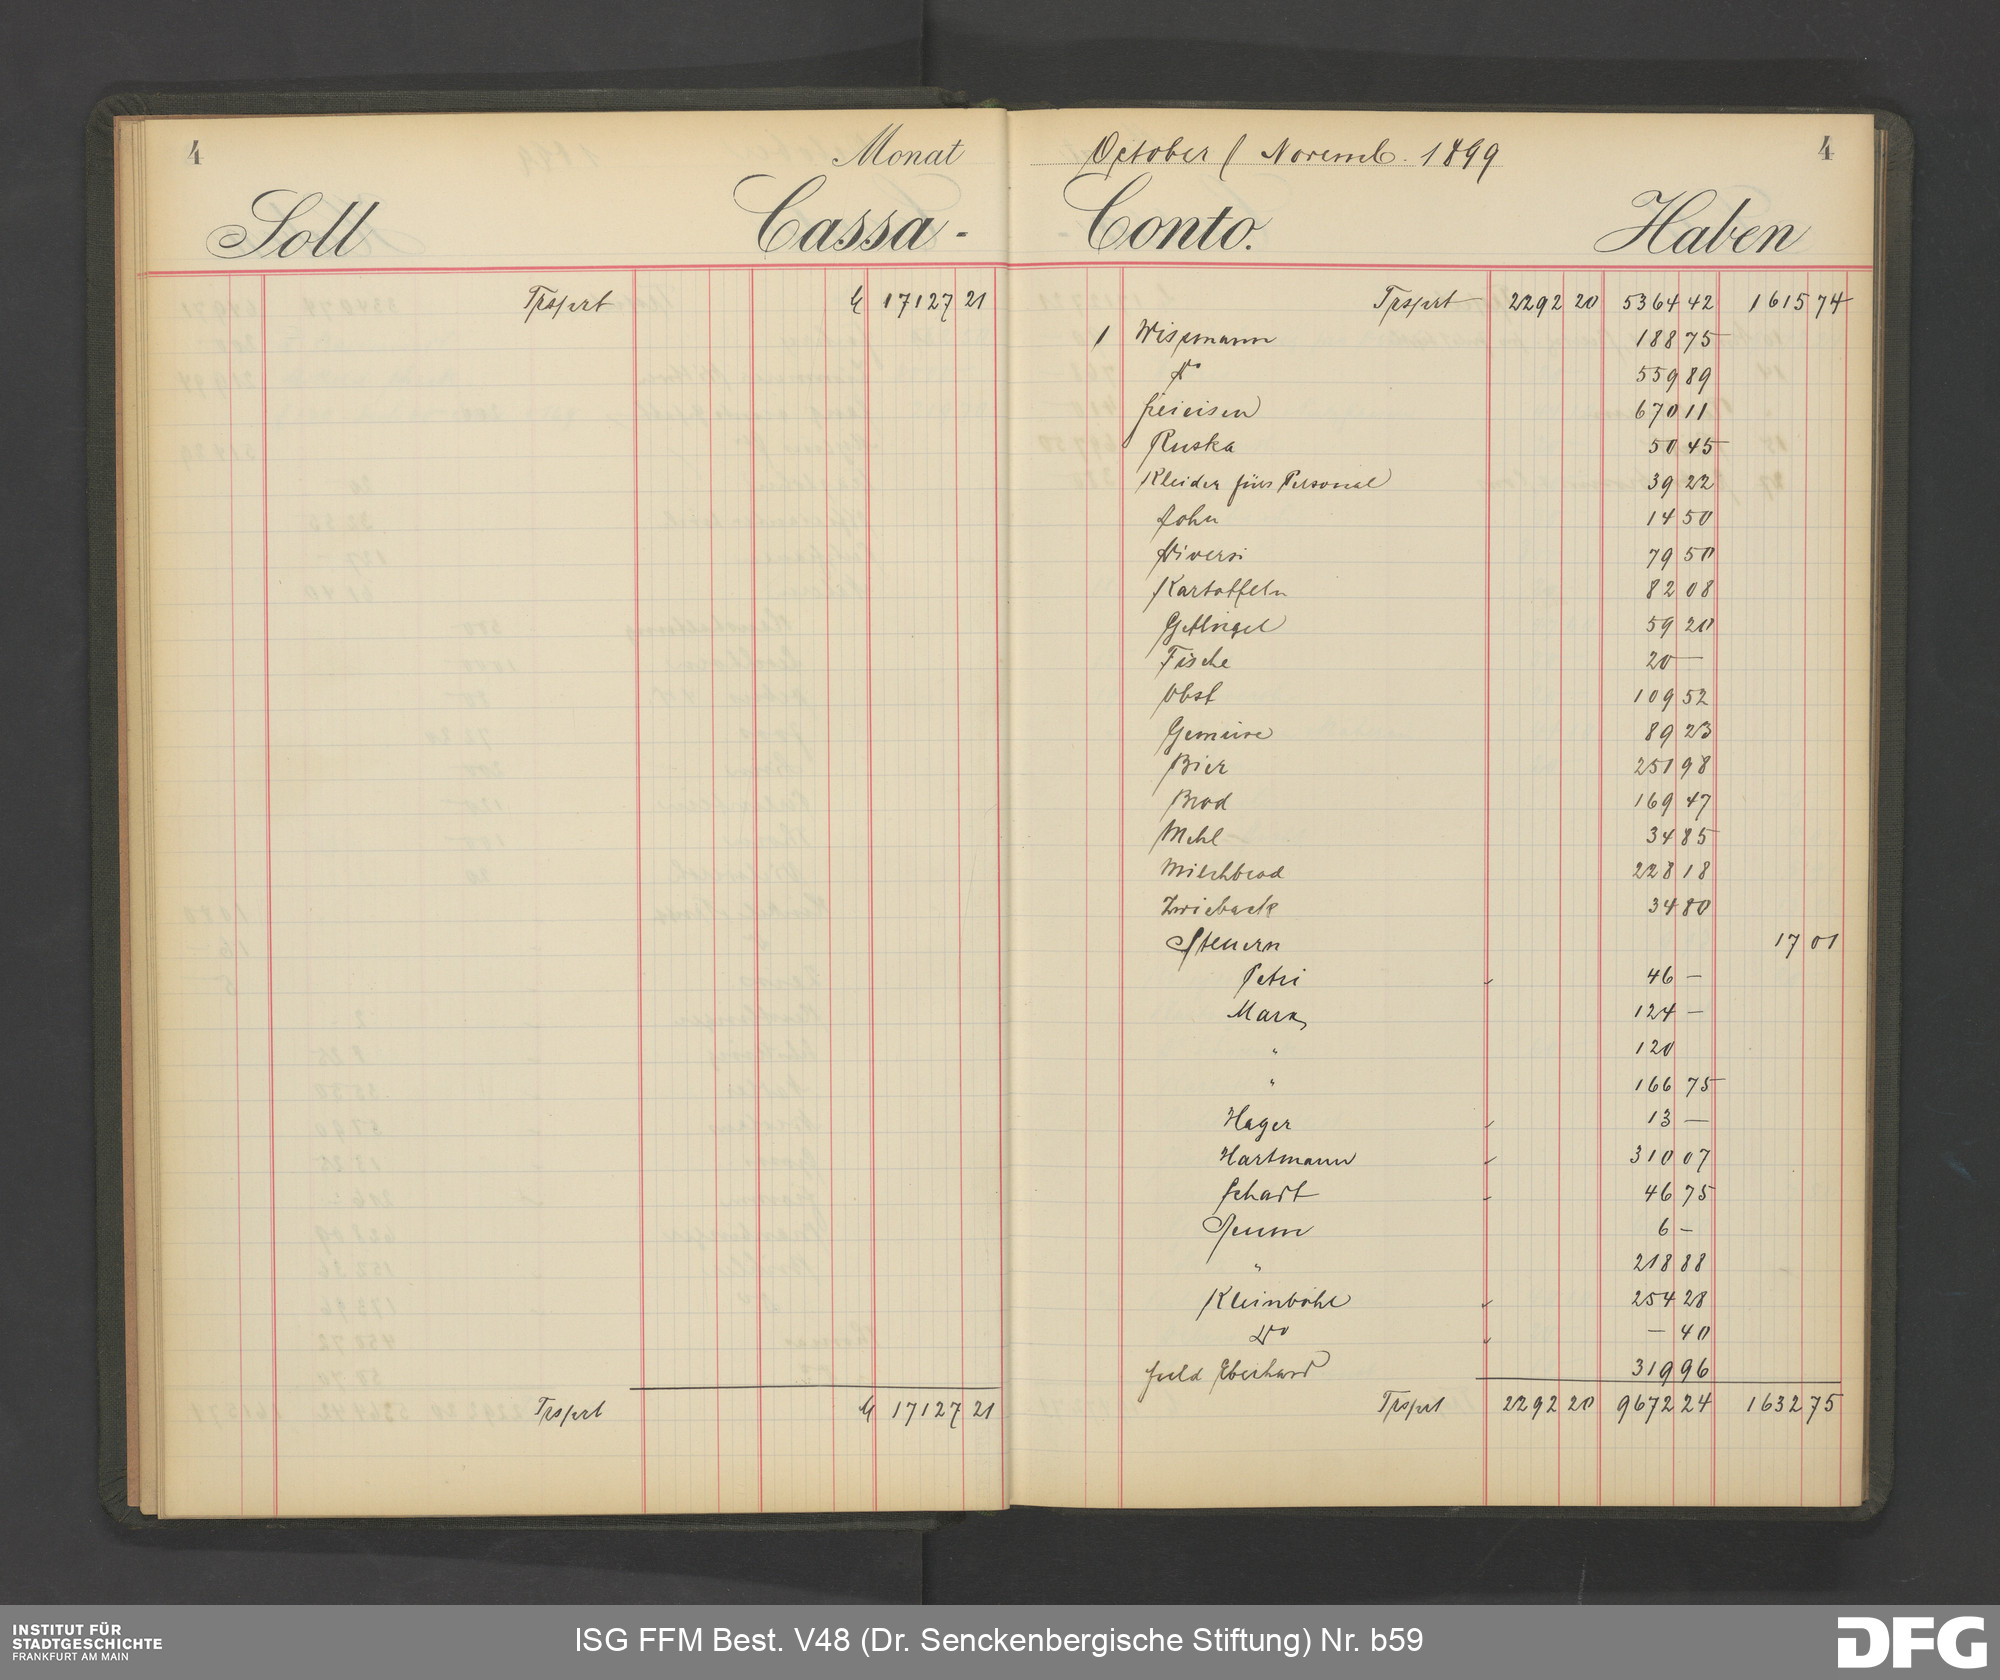 4
Monat
Soll
Cassa-
Trsprt M 17127 21
Trsprt M 17127 21
October / Novemb. 1899
4
Conto.
Haben
Trsprt 2292 20 5364 42 1615 74
1 Wissmann 188 75
do 559 89
Freieisen 670 11
Ruska 50 45
Kleider fürs Personal 39 22
John 14 50
Diversi 79 50
Kartoffeln 82 08
Geflügel 59 20
Fische 20 —
Obst 109 52
Gemüse 89 23
Bier 251 98
Brod 169 47
Mehl 34 85
Milchbrod 228 18
Zwieback 34 80
Steuern 17 01
Petri 46 —
Marx 124 —
" 120
" 166 75
Hager 13 —
Hartmann 310 07
Schart 46 75
6 —
" 218 88
Kleinböhl 254 28
do — 40
Eberhard 319 96
Trsprt 2292 20 9672 24 1632 75
INSTITUT FÜR
STADTGESCHICHTE
FRANKFURT AM MAIN
ISG FFM Best. V48 (Dr. Senckenbergische Stiftung) Nr. b59
DFG